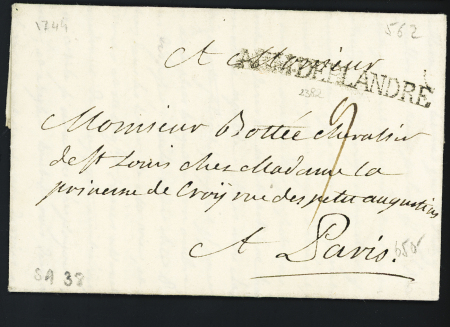 1744
562
A Monsieur
ARM DE FLANDRE
2382
Monsieur Bottée chevalier
de St Louis chez Madame la
princesse de Croÿ rue des petits augustins
A Paris.
650
SA 38